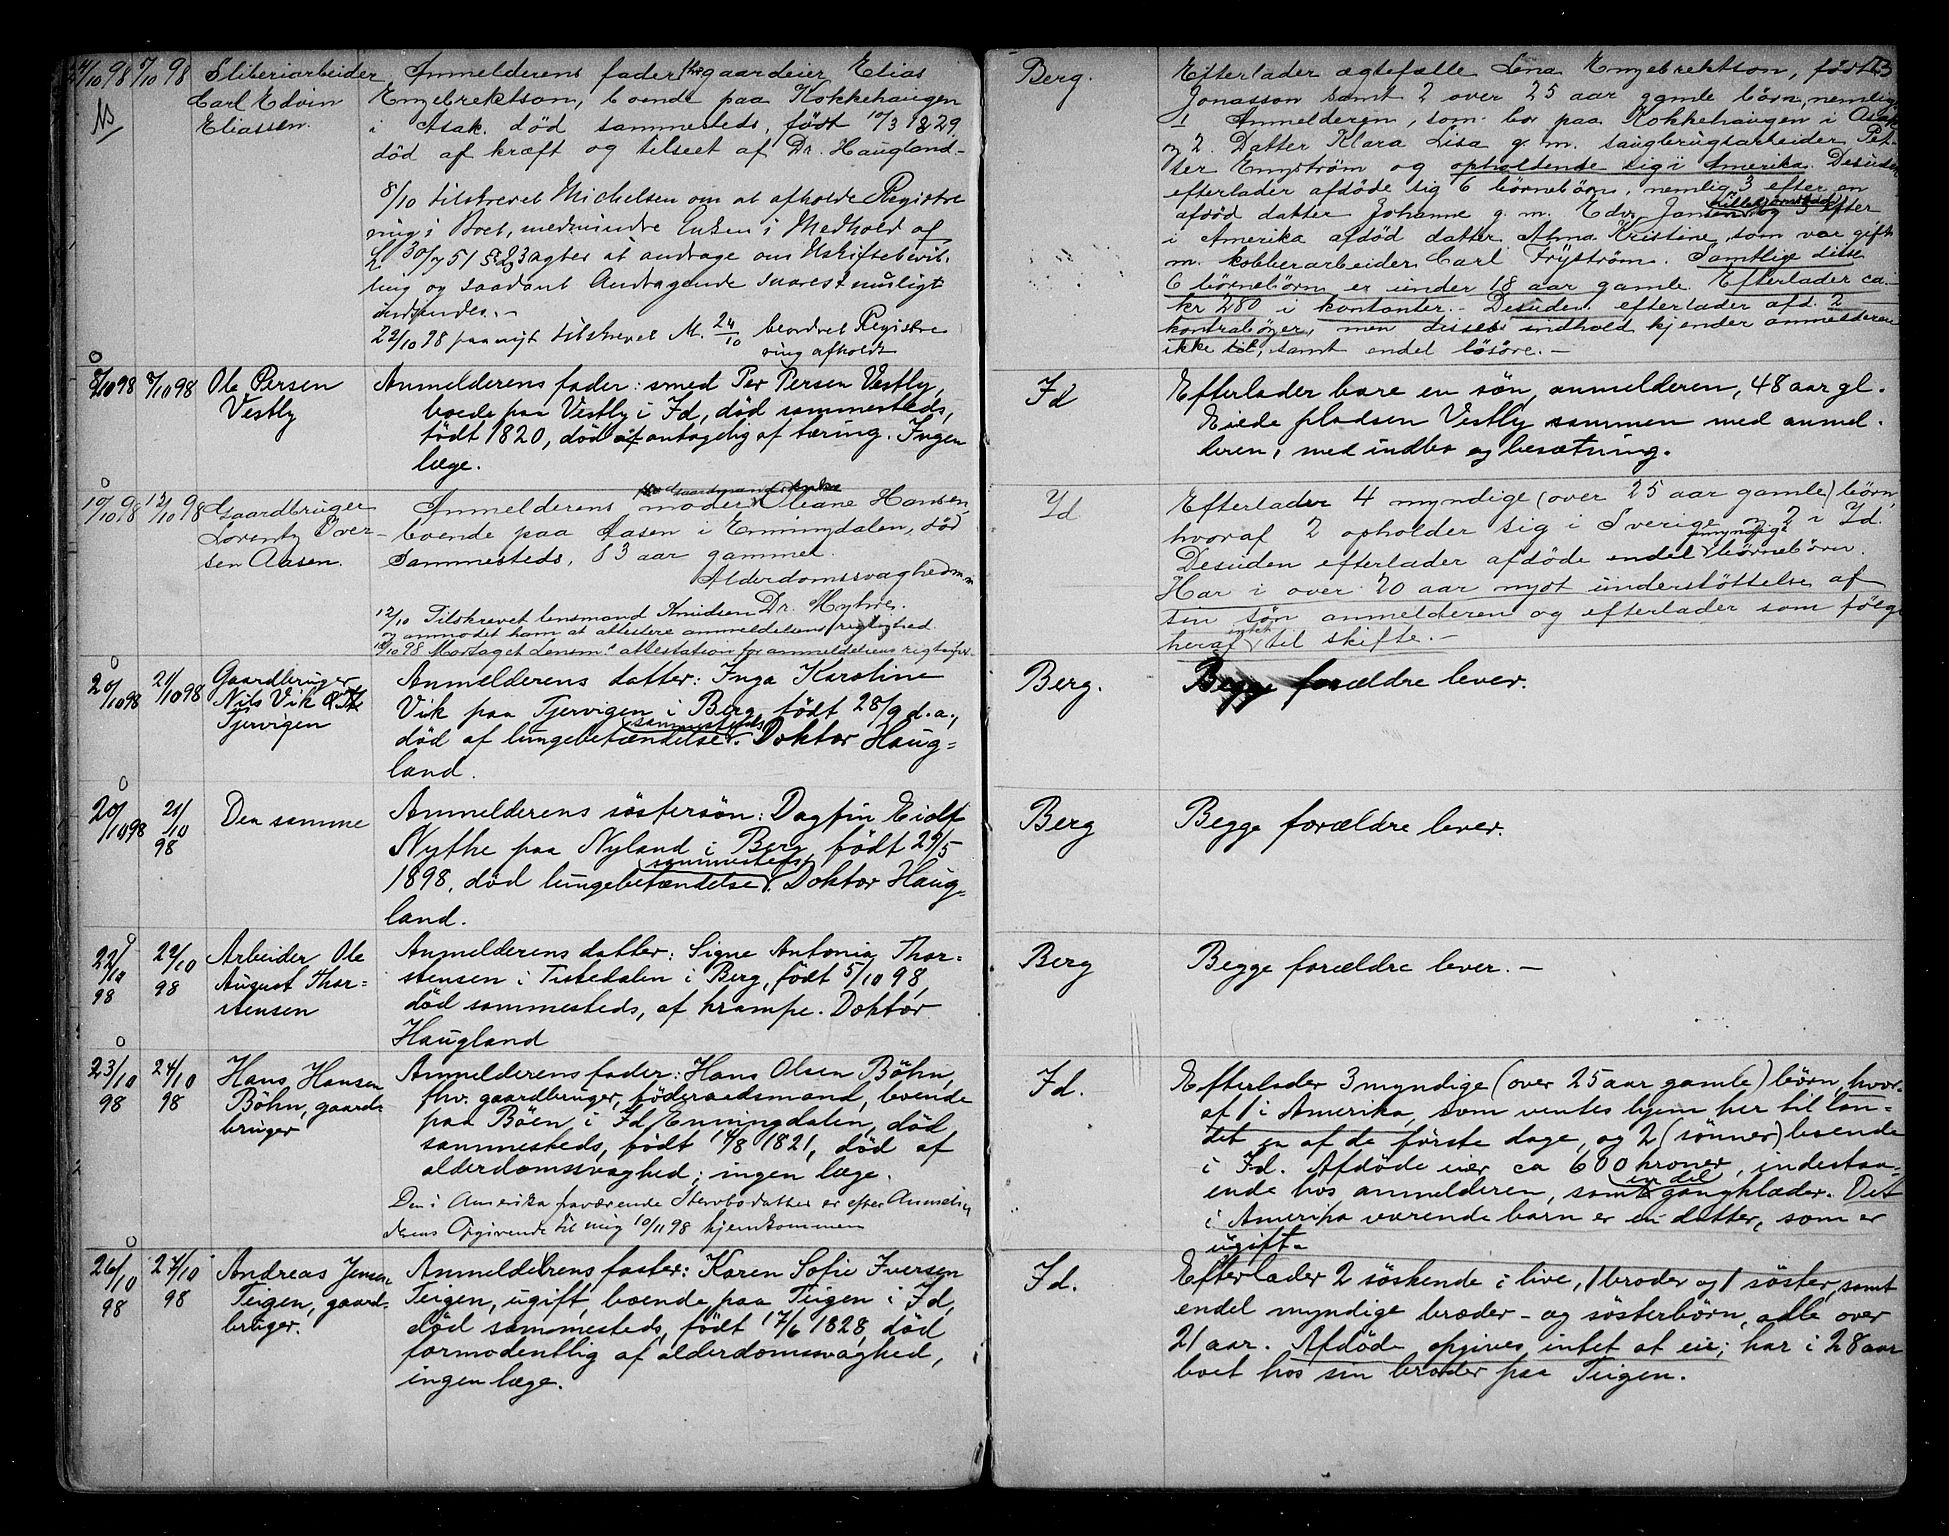 4/10 98 7/10 98 Sliberiarbeider Anmelderens fader fhv gaardeier Elias
Carl Edvin Engebrektson, boende paa Kokkehaugen
Eliassen. i Asak. död sammesteds, født 10/3 1829,
død af kræft og tilseet af Dr. Haugland -
8/10 tilskrevet Michelsen om at afholde Registre
ring i Boet, medmindre Enken i Medhold af
L 30/7 51 § 23 agter at andrage om Uskiftebevil
ling og saadant Andragende snarest muligt
indsendes. -
22/10 98 paanyt tilskrevet M. 24/10 beordret Registre
ring afholdt
Berg. Efterlader ægtefælle Lena Engebrektson, født 13
Jonasson samt 2 over 25 aar gamle børn, nemlig
1 Anmelderen, som bor paa Kokkehaugen i Asak
og 2. Datter Klara Lisa g. m. saugbrugsarbeider Pet-
ter Engström og opholdende sig i Amerika. Desuden
efterlader afdøde sig 6 börnebörn, nemlig 3 efter en
afdöd datter Johanne g. m. Edv. Jansen og 3 efter
i Amerika afdöd datter Alma Kristine, som var gift
m. kobberarbeider Carl Frÿström. Samtlige disse
6 börnebörn er under 18 aar gamle. Efterlader ca.
kr 280 i kontanter. - Desuden efterlader afd. 2
kontrabøger, men disses indhold kjender anmelderen
ikke til, samt endel lösöre. -
8/10 98 8/10 98 Ole Persen Anmelderens fader: smed Per Persen Vestly,
Vestly boede paa Vestly i Id, död sammesteds,
født 1820, död af antagelig af tæring. Ingen
læge.
Id Efterlader bare en sön, anmelderen, 48 aar gl.
Eiede pladsen Vestly sammen med anmel-
deren, med indbo og besætning.
10/10 98 12/10 98 Gaardbruger Anmelderens moder Oleane Hansen,
Lorentz Iver- boende paa Aasen i Enningdalen, död
sen Aasen. sammesteds, 83 aar gammel.
Alderdomssvaghed
12/10 Tilskrevet lensmand Knudsen Dr. Myhre.
og anmodet ham at attestere anmeldelsens rigtighed.
18/10 98 Mortaget Lensm.s attestation for anmeldelsens rigtighed.
Id Efterlader 4 myndige (over 25 aar gamle) börn,
hvoraf 2 opholder sig i Sverige og 2 i Id.
Desuden efterlader afdöde endel myndige börnebörn.
Har i over 20 aar nydt understöttelse af
sin sön anmelderen og efterlader som fölge
heraf intet til skifte. -
20/10 98 21/10 98 Gaardbruger Anmelderens datter: Inga Karoline
Nils Vik Vik paa Tjervigen i Berg, födt 28/9 d. a.,
Tjervigen död af lungebetændelse sammesteds. Doktor Haug=
land.
Berg. Begge forældre lever.
20/10 98 21/10 98 Den samme Anmelderens söstersön: Dagfin Eiolf
Nythe paa Nyland i Berg, födt 29/5
1898, död lungebetændelse sammesteds. Doktor Haug=
land.
Berg Begge forældre lever.
22/10 98 22/10 98 Arbeider Ole Anmelderens datter: Signe Antonia Thor=
August Thor= stensen i Tistedalen i Berg, födt 5/10 98,
stensen död sammesteds, af krampe. Doktor
Haugland
Berg Begge forældre lever. -
23/10 98 24/10 98 Hans Hansen Anmelderens fader: Hans Olsen Böhn,
Böhn, gaard= fhv. gaardbruger, föderaadsmand, boende
bruger paa Böen, i Id, Enningdalen, död
sammesteds, födt 14/8 1821, död af
alderdomssvaghed; ingen læge.
Den i Amerika fraværende Stervbodatter er efter Anmelde
rens Opgivende til mig 10/11 98 hjemkommen
Id. Efterlader 3 myndige (over 25 aar gamle) börn, hvor-
af 1 i Amerika, som ventes hjem her til lan=
det en af de förste dage, og 2 (sönner) boende
i Id. Afdöde eier ca 600 kroner, indestaa=
ende hos anmelderen, samt en del gangklæder. Det
i Amerika værende barn er en datter, som er
ugift.
26/10 98 27/10 98 Andreas Jensen Anmelderens faster: Karen Sofie Iversen
Teigen, gaard= Teigen, ugift, boende paa Teigen i Id,
bruger. död sammesteds, födt 17/6 1828, död
formodentlig af alderdomssvaghed,
ingen læge.
Id. Efterlader 2 söskende i live, 1 broder og 1 söster, samt
endel myndige broder- og sösterbörn, alle over
21 aar. Afdöde opgives intet at eie; har i 28 aar
boet hos sin broder paa Teigen.